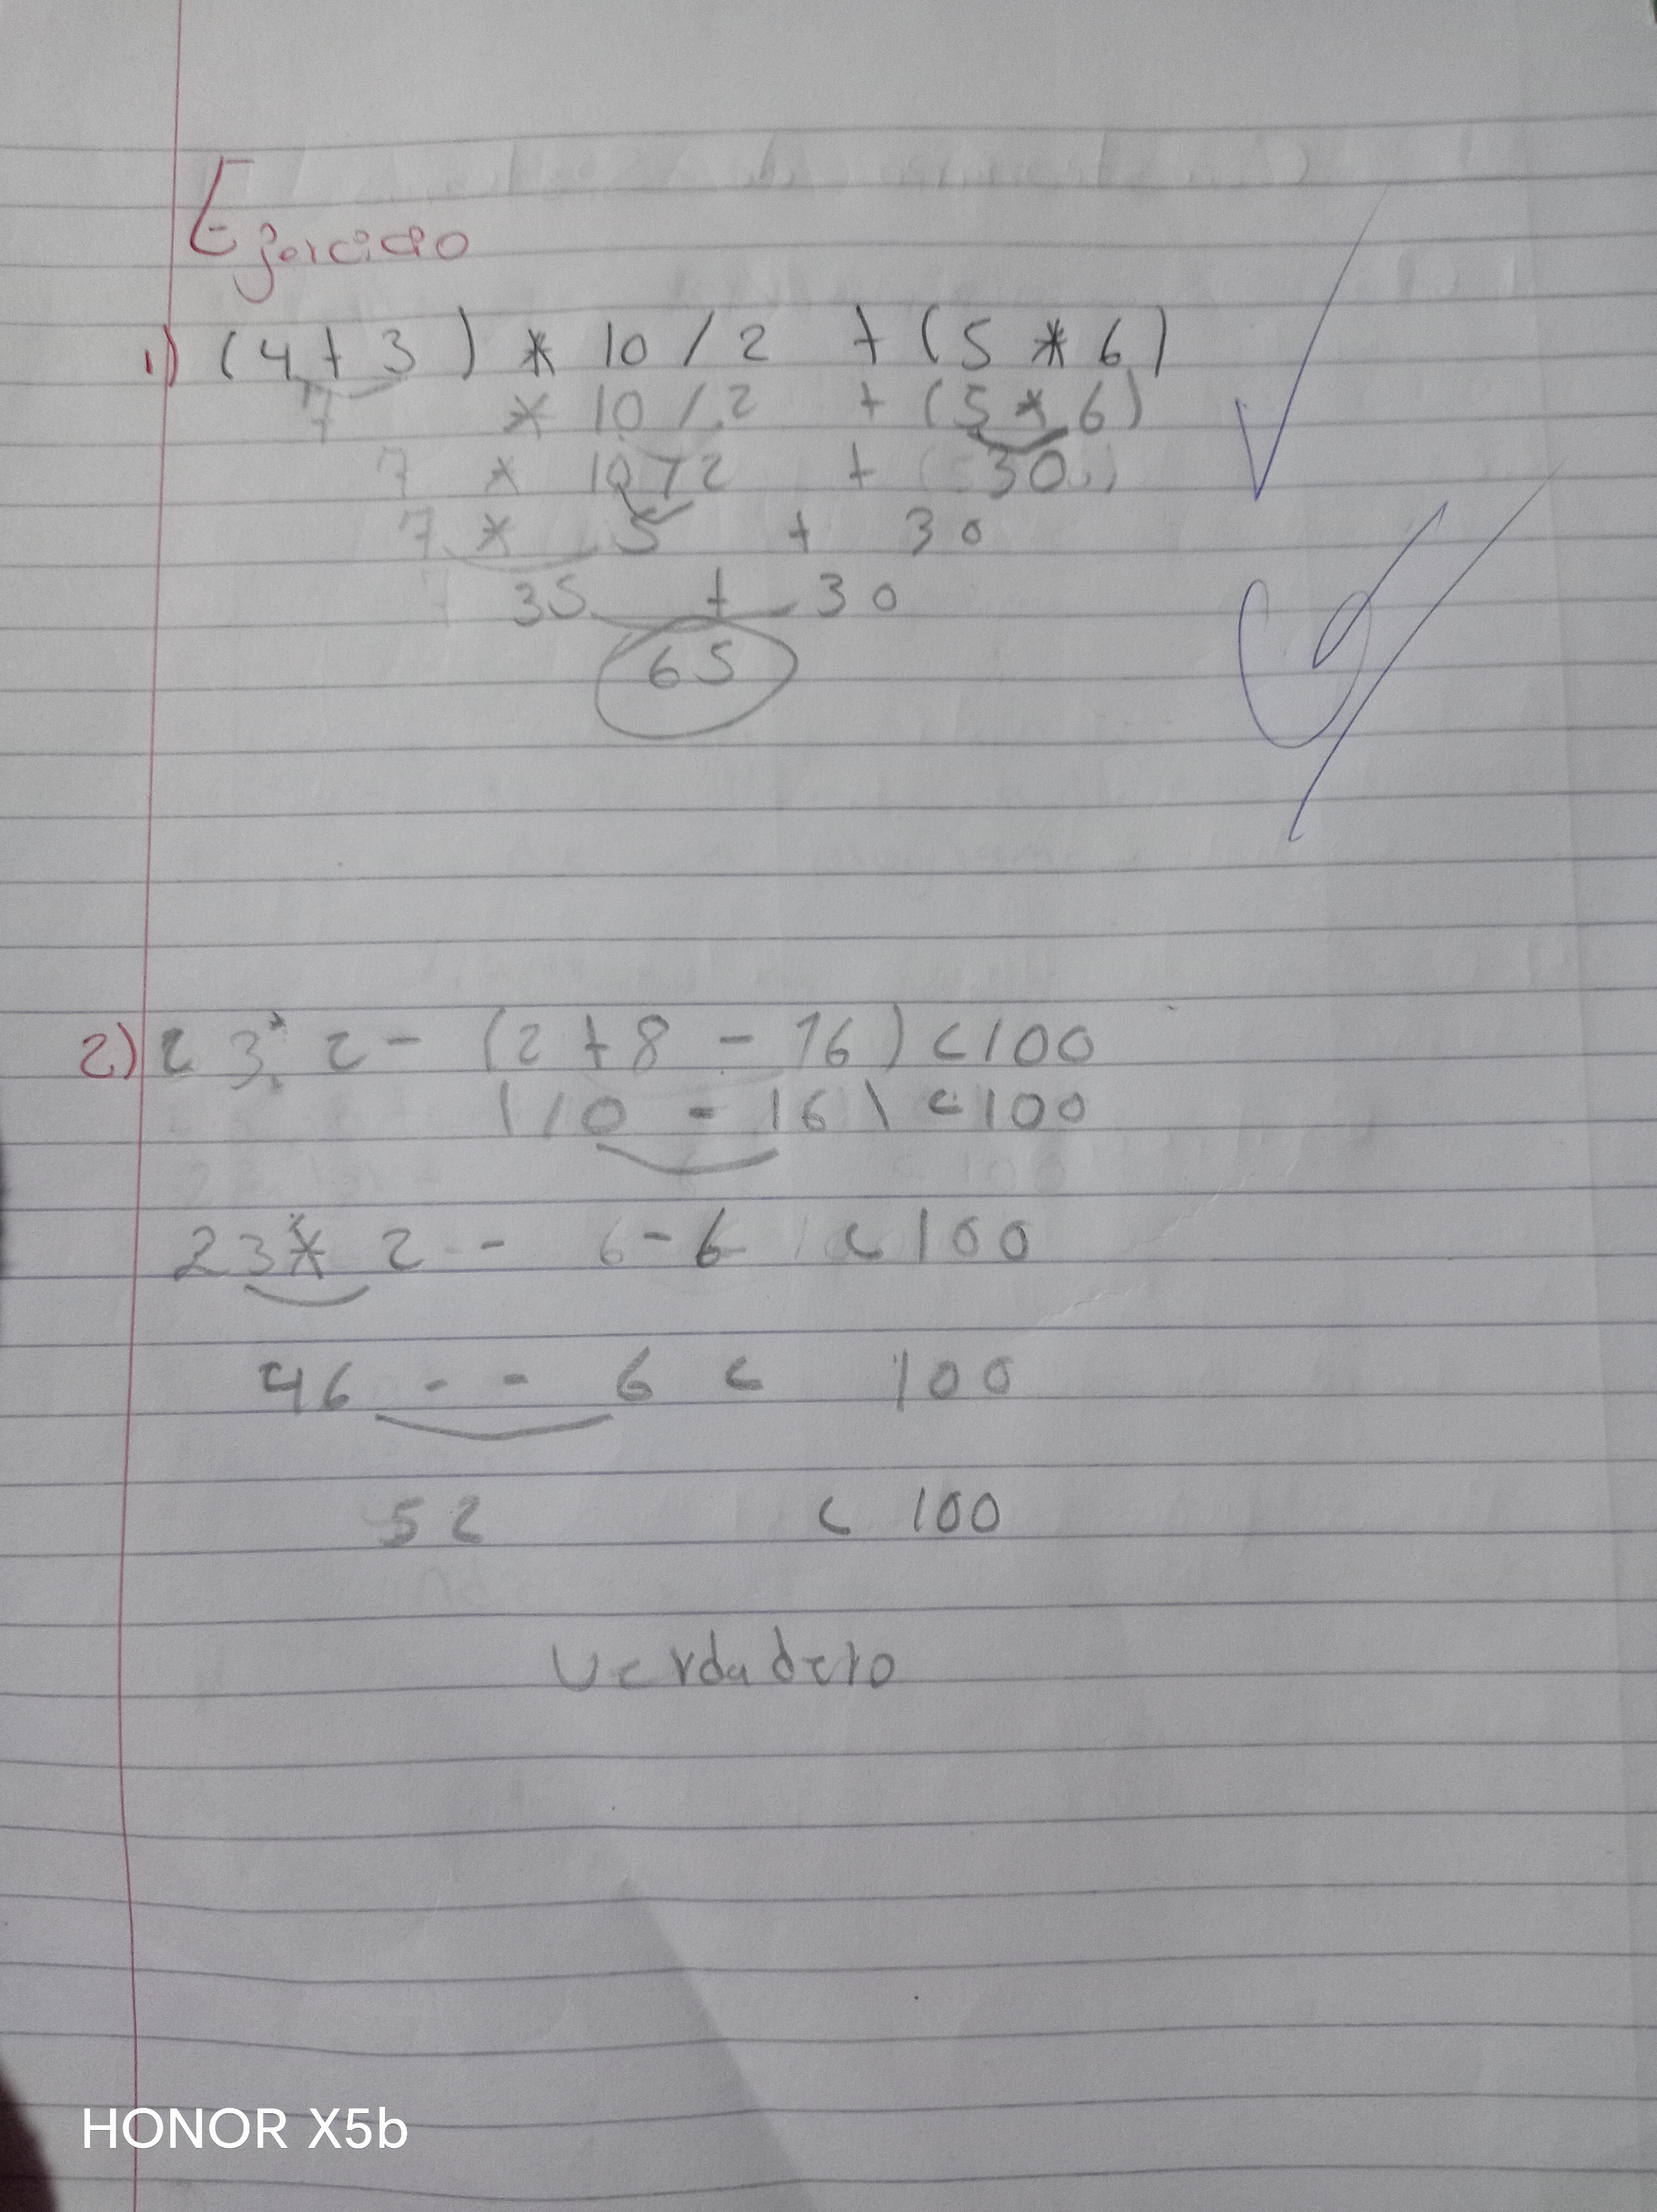 Ejercicio
1) (4+3) * 10 / 2 + (5 * 6)
7 * 10 / 2 + (5 * 6)
7 * 10 / 2 + 30
7 * 5 + 30
35 + 30
65
2) 23 * 2 - (2 + 8 - 16) < 100
(10 - 16) < 100
23 * 2 - 6 - 6 < 100
46 - - 6 < 100
52 < 100
Verdadero
HONOR X5b